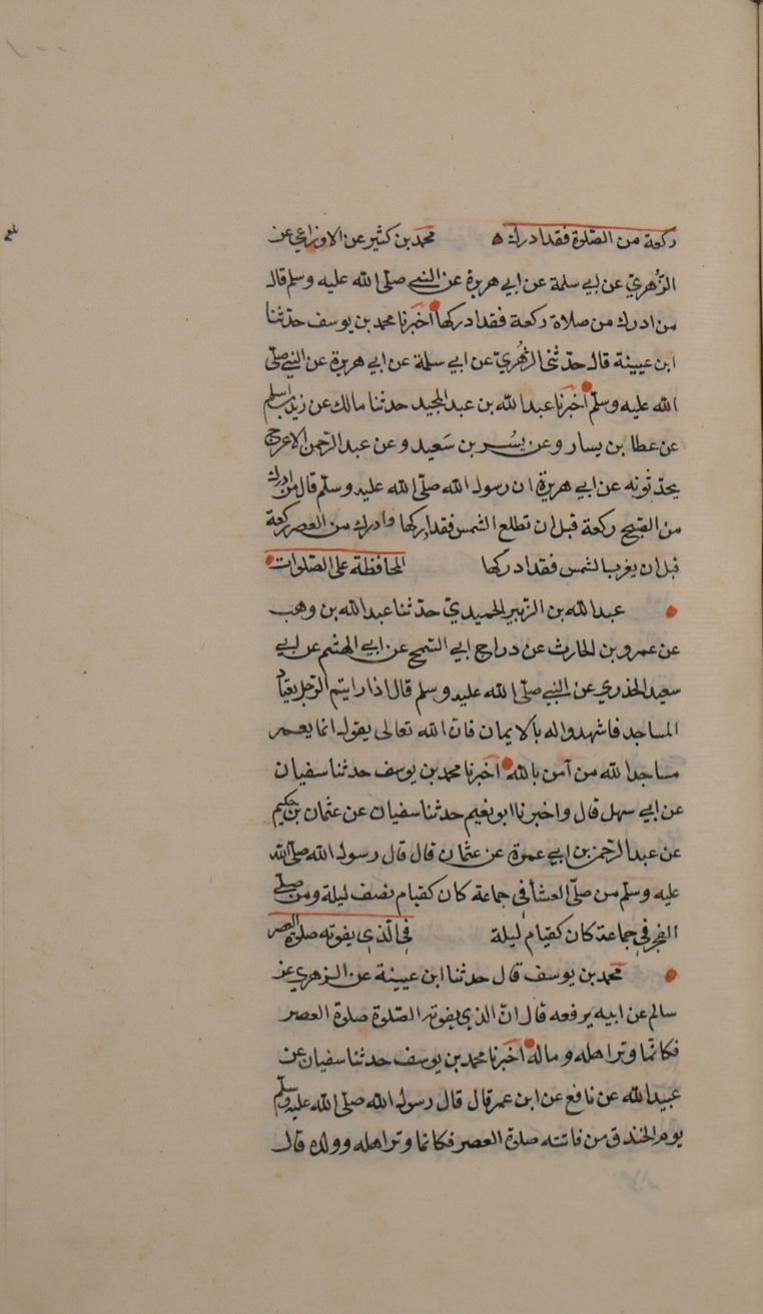 ركعة من الصلوة فقد ادرك محمد بن كثير عن الاوزاعي عن
الزُهري عن ابي سلمة عن ابي هريرة عن النبي صلى الله عليه وسلم قال
من ادرك من صلاة ركعة فقد ادركها اخبرنا محمد بن يوسف حدثنا
ابن عيينة قال حدثني الزهري عن ابي سلمة عن ابي هريرة عن النبي صلى
الله عليه وسلم اخبرنا عبد الله بن عبد المجيد حدثنا مالك عن زيد بن اسلم
عن عطا بن يسار وعن بُسْر بن سَعيد وعن عبد الرحمن الاعرج
يحدثونه عن ابي هريرة ان رسول الله صلى الله عليه وسلم قال من ادرك
من الصبح ركعة قبل ان تطلع الشمس فقد ادركها وادرك من العصر ركعة
قبل ان يغرب الشمس فقد ادركها المحافظة على الصلوات
عبد الله بن الزبير الحميدي حدثنا عبد الله بن وهب
عن عمرو بن الحارث عن دراج ابي السمح عن ابي الهثم عن ابي
سعيد الخذري عن النبي صلى الله عليه وسلم قال اذا رايتم الرجل يعتاد
المساجد فاشهدوا له بالايمان فان الله تعالى يقول انما يعمر
مساجد الله من آمن بالله اخبرنا محمد بن يوسف حدثنا سفيان
عن ابي سهل قال واخبرنا ابو نعيم حدثنا سفيان عن عثمان بن حكيم
عن عبد الرحمن بن ابي عمرة عن عثمان قال قال رسول الله صلى الله
عليه وسلم من صلى العشأ في جماعة كان كقيام نصف ليلة ومن صلى
الفجر في جماعة كان كقيام ليلة في الذي يفوته صلوة العصر
محمد بن يوسف قال حدثنا ابن عيينة عن الزهري عن
سالم عن ابيه يرفعه قال انّ الذي يفوته الصلوة صلوة العصر
فكانما وتر اهله وماله اخبرنا محمد بن يوسف حدثنا سفيان عن
عبيد الله عن نافع عن ابن عمر قال قال رسول الله صلى الله عليه وسلم
يوم الخندق من فاتته صلوة العصر فكانما وتر اهله وولده قال